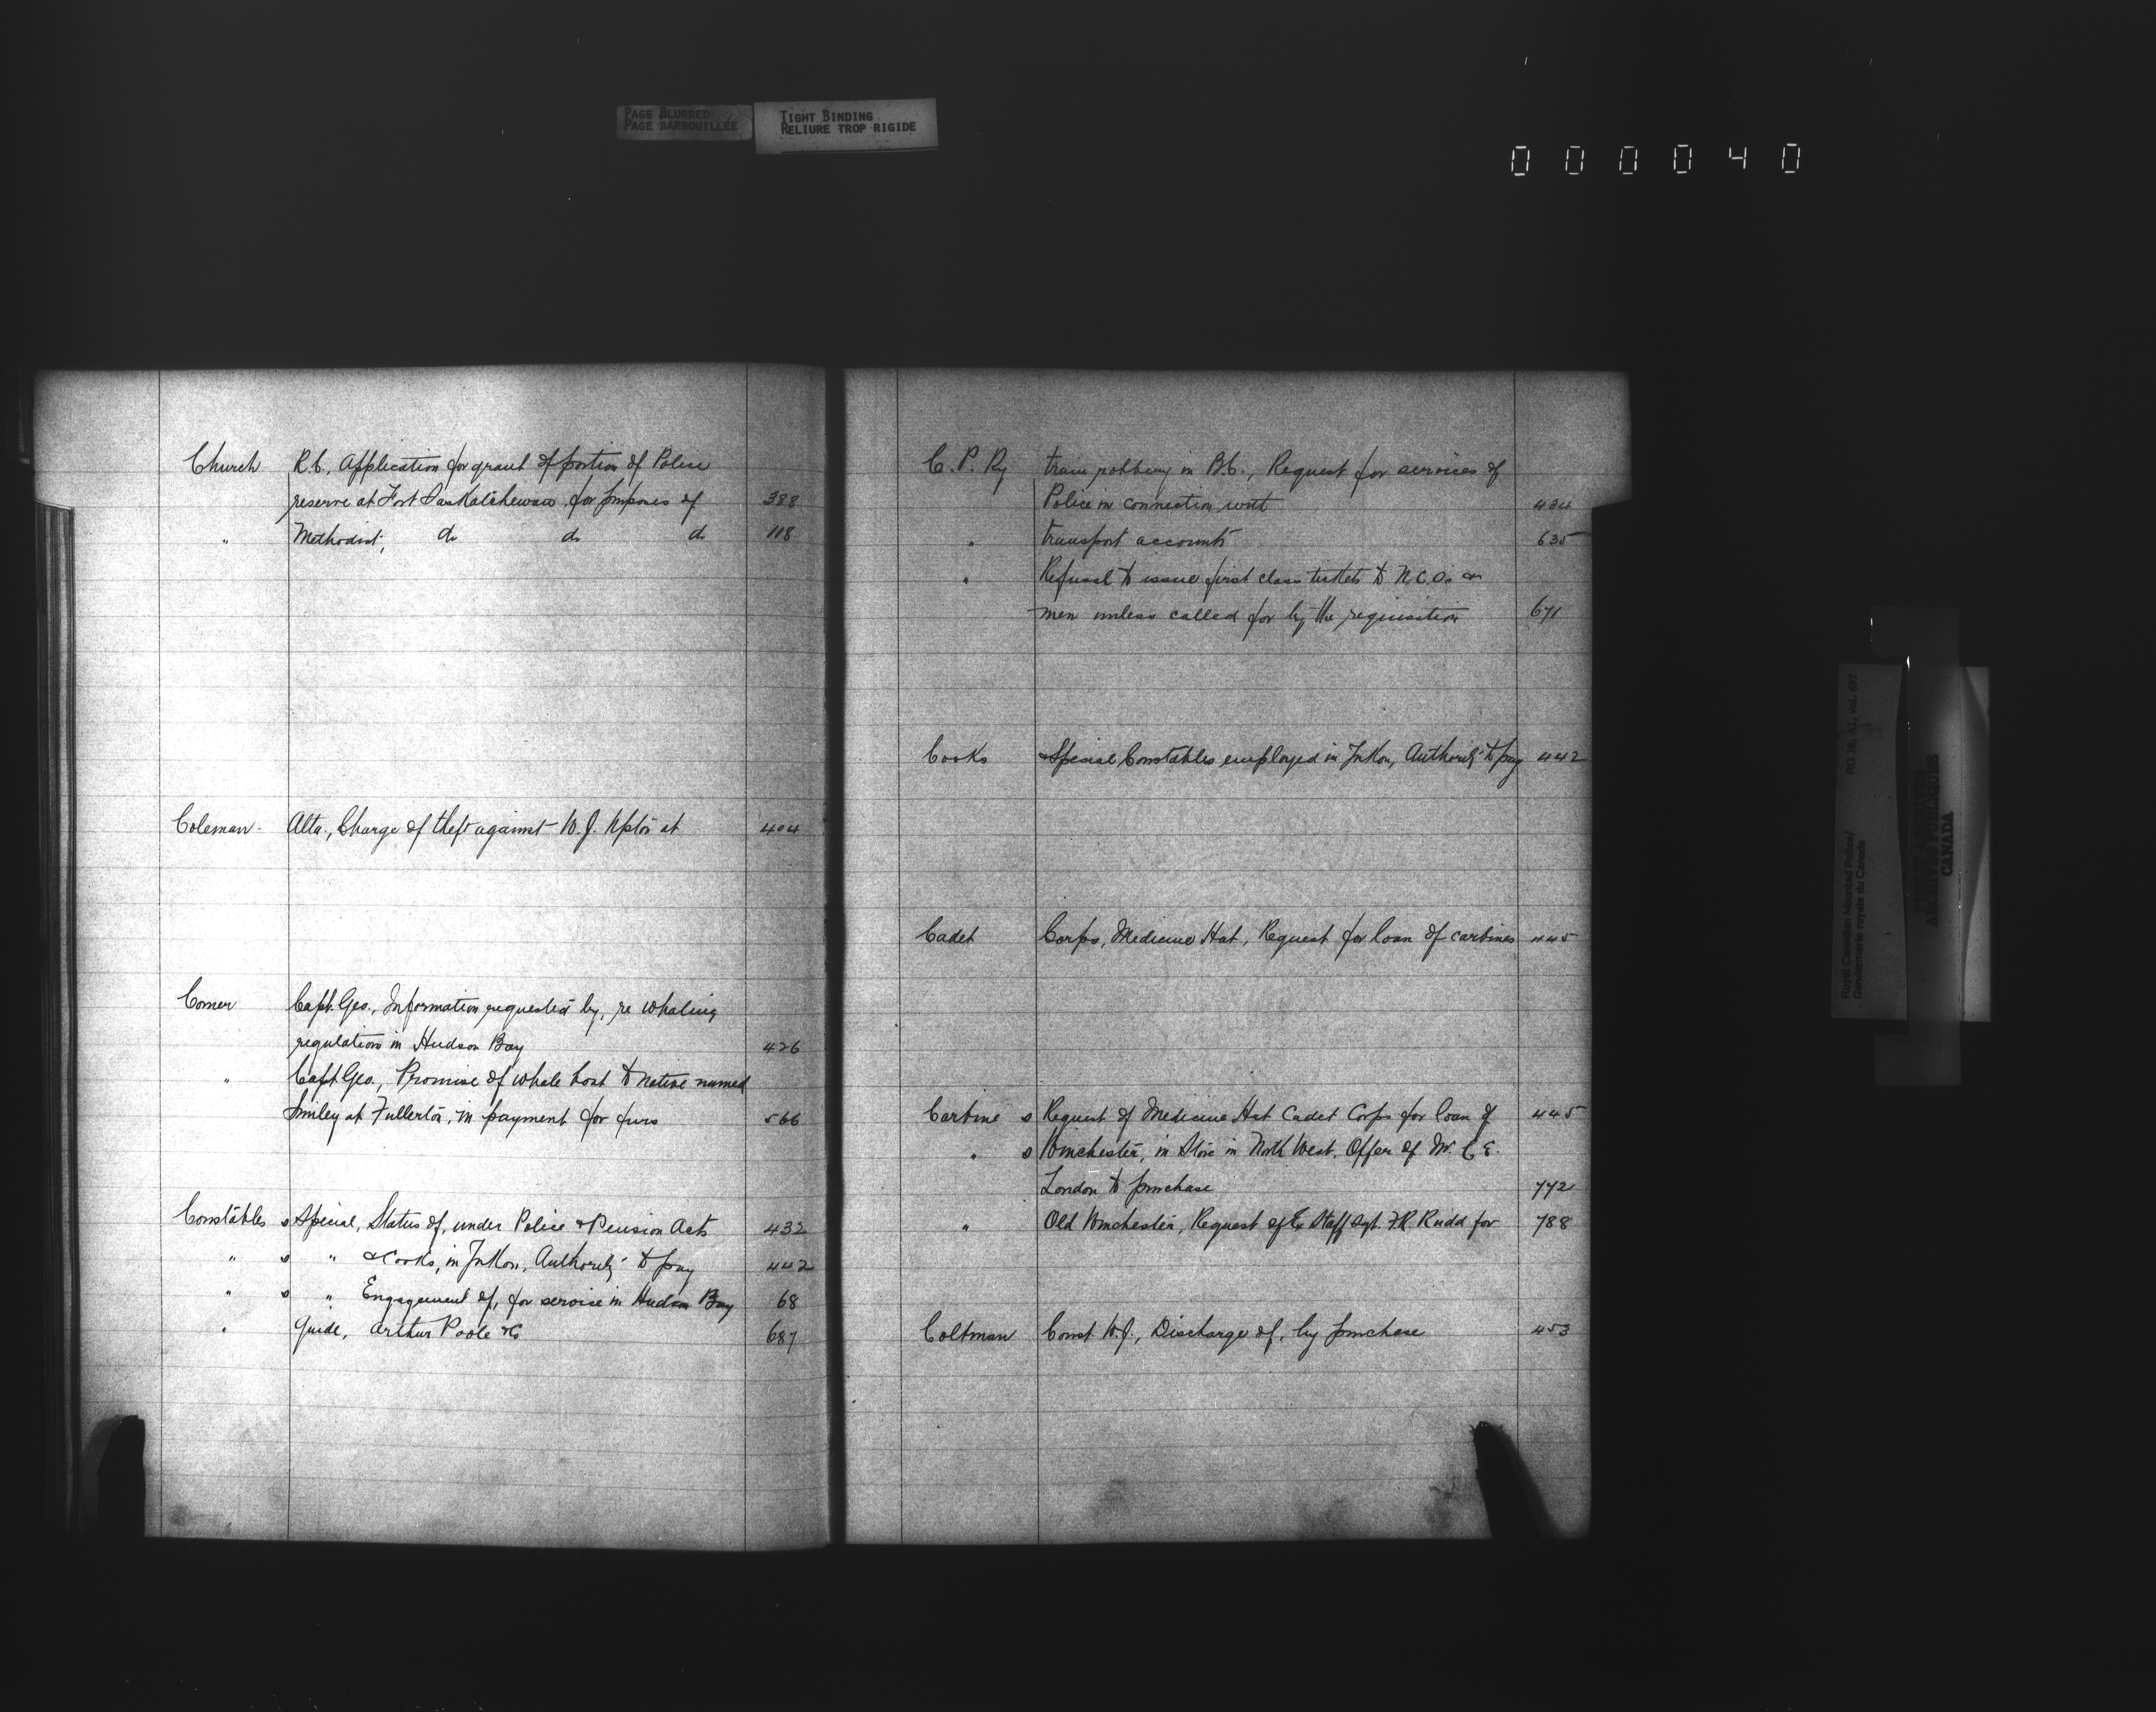 PAGE BLURRED
PAGE BARBOUILLÉE
TIGHT BINDING
RELIURE TROP RIGIDE
000040
Church R.C., Application for grant of portion of Police
reserve at Fort Saskatchewan, for purposes of 388
" Methodist, do do do 118
Coleman Alta., Charge of theft against W. J. Upton at 404
Comer Capt. Geo., Information requested by, re whaling
regulations in Hudson Bay 426
" Capt. Geo., Promise of whale boat to native named
Smiley at Fullerton, in payment for furs 566
Constables Special, Status of, under Police & Pension Acts 432
" s " & Cooks, in Yukon, Authority to pay 442
" s " Engagement of, for service in Hudson Bay 68
" Guide, Arthur Poole &c 687
C. P. Ry train robbery in B.C., Request for services of
Police in connection with 434
" transport accounts 635
" Refusal to issue first class tickets to N.C.Os or
men unless called for by the requisition 671
Cooks & Special Constables employed in Yukon, Authority to pay 442
Cadet Corps, Medicine Hat, Request for loan of carbines 445
Carbine s Request of Medicine Hat Cadet Corps for loan of 445
" s Winchester, in Store in North West. Offer of Mr. C. E.
London to purchase 772
" Old Winchester, Request of Ex Staff Sgt. F.R. Rudd for 788
Coltman Const. W.J., Discharge of, by purchase 453
Royal Canadian Mounted Police/
Gendarmerie royale du Canada
RG 18, A.1, vol. 697
PUBLIC ARCHIVES
ARCHIVES PUBLIQUES
CANADA